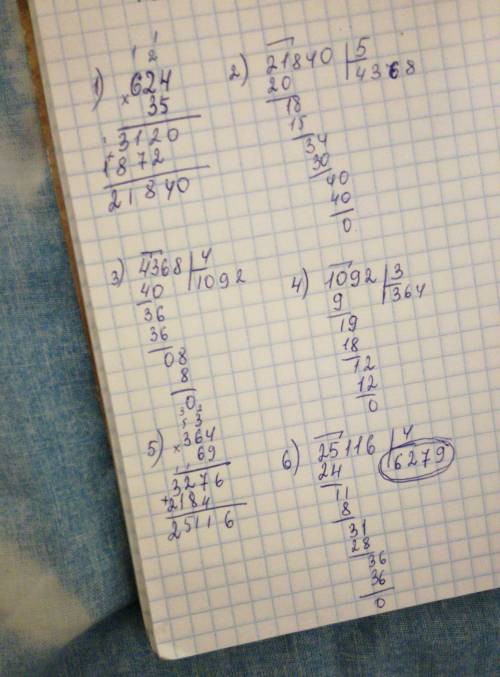 1) 1 1
2
× 624
35
1 3120
+ 1872
21840
2) 21840 | 5
20 4368
18
15
34
30
40
40
0
3) 4368 | 4
40 1092
36
36
08
8
0
4) 1092 | 3
9 364
19
18
12
12
0
5) 3 2
5 3
× 364
69
1 1
3276
+ 2184
25116
6) 25116 | 4
24 6279
11
8
31
28
36
36
0